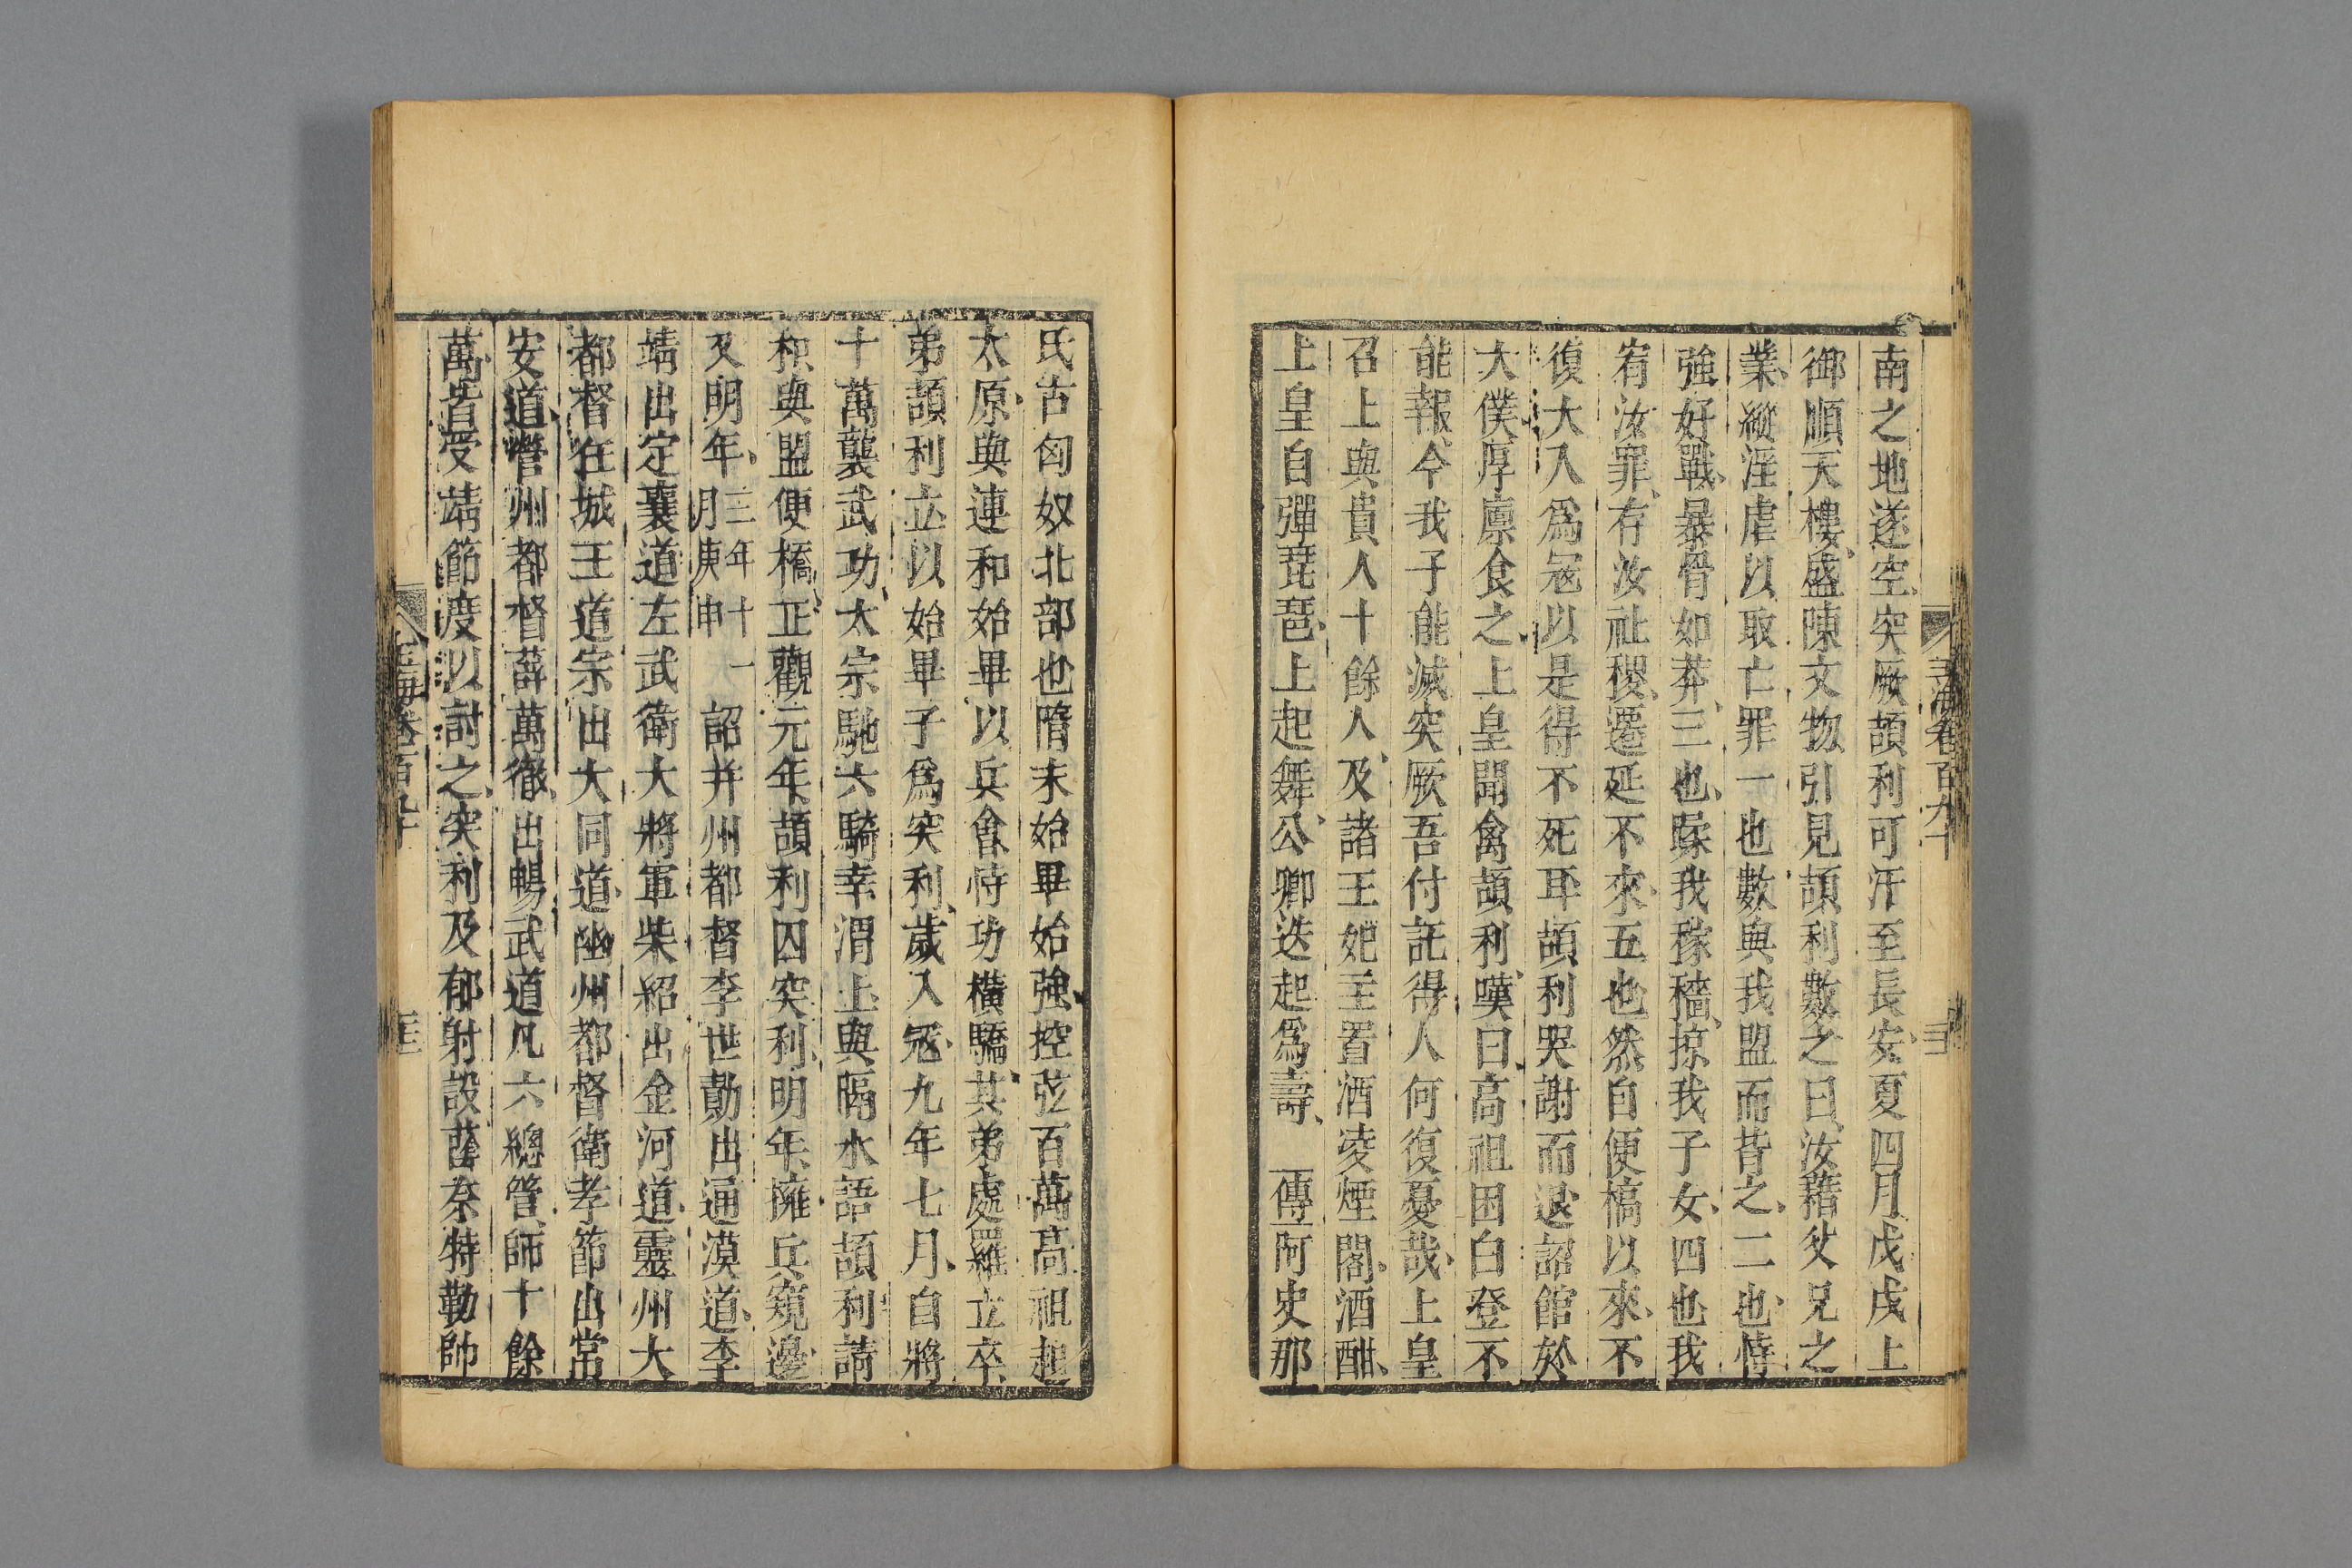 南之地遂空突厥頡利可汗至長安夏四月戊戌上
御順天樓盛陳文物引見頡利數之曰汝藉父兄之
業縱淫虐以取亡罪一也數與我盟而背之二也恃
強好戰暴骨如莽三也蹂我稼穡掠我子女四也我
宥汝罪存汝社稷遷延不來五也然自便橋以來不
復大入為寇以是得不死耳頡利哭謝而退詔館於
大僕厚廪食之上皇聞禽頡利嘆曰高祖困白登不
能報今我子能滅突厥吾付託得人何復憂哉上皇
召上與貴人十餘人及諸王妃主置酒凌煙閣酒酣
上皇自彈琵琶上起舞公卿迭起為壽 傳阿史那
氏古匈奴北部也隋末始畢始強控弦百萬高祖起
太原與連和始畢以兵會恃功橫驕其弟處羅立卒
弟頡利立以始畢子為突利歲入寇九年七月自將
十萬襲武功太宗馳六騎幸渭上與隔水語頡利請
和與盟便橋正觀元年頡利囚突利明年擁兵窺邊
又明年三年十一月庚申詔并州都督李世勣出通漠道李
靖出定襄道左武衛大將軍柴紹出金河道靈州大
都督任城王道宗出大同道幽州都督衛孝節出常
安道營州都督薛萬徹出暢武道凡六總管師十餘
萬皆受靖節度以討之突利及郁射設蔭奈特勒帥
玉海卷百九十